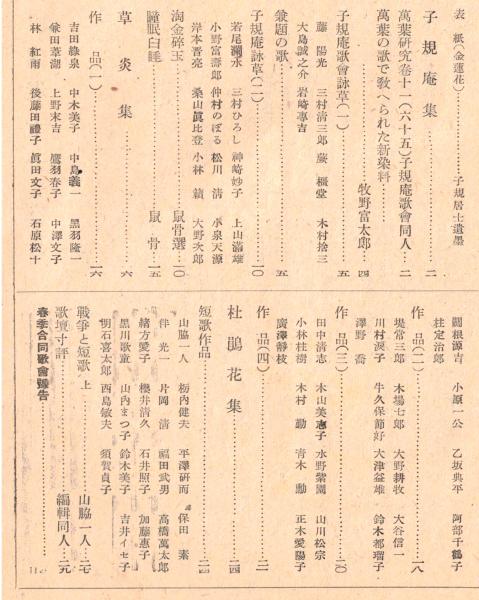 表 紙(金蓮花)……子規居士遺墨
子規庵集……二
萬葉研究卷十一(六十五)子規庵歌會同人…二
萬葉の歌で敎へられた新染料……牧野富太郎…四
子規庵歌會詠草(一)……五
藤 陽光 三村淸三郎 蕨 橿堂 木村捨三
大島誠之介 岩崎專吉
兼題の歌……五
子規庵詠草(二)……一〇
若尾瀾水 三村ひろし 神崎妙子 上山滿雄
小野富壽郎 仲村のぼる 松川 淸 小泉天源
岸本晋亮 桑山眞比登 小林 績 大野次郎
淘金碎玉……鼠骨選…一〇
睡眠白睡……鼠 骨…一五
草炎集……六
作 品(一)……一六
吉田綠泉 中木美子 中島義一 黑羽隆一
兼田葦湖 上野末吉 鷹羽春子 中澤文子
林 紅雨 後藤田禮子 眞田文子 石原松十
關根源吉 小原一公 乙坂典平 阿部千鶴子
柱定治郎
作 品(二)……一八
堤常三郎 木場七郎 大野耕牧 大谷信一
川村淚子 牛久保節好 大津益雄 鈴木都瑠子
澤野 喬
作 品(三)……二〇
田中淸志 木山美憲子 水野紫園 山川松宗
小林桂樹 木村 勤 靑木 勳 正木愛陽子
廣澤靜枝
作 品(四)……二二
杜鵑花集……二四
短歌作品……二四
山脇一人 栃內健夫 平澤研而 保田 素
伴 光一 片岡 淸 福田武男 高橋萬太郎
緖方愛子 櫻井淸久 石井照子 加藤惠子
黑川歌童 山內まつ子 鈴木美子 吉井イセ子
明石喜太郎 西島敏夫 須賀貞子
戰爭と短歌 上……山脇一人…二七
歌壇寸評……編輯同人…二九
春季合同歌會豫告